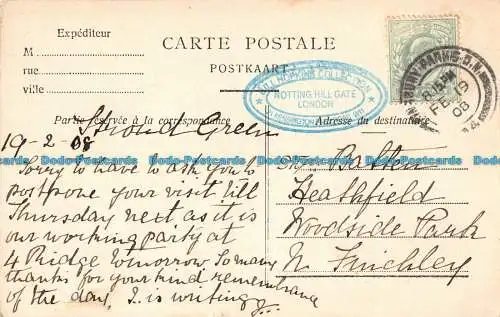 Expéditeur
M
rue
ville
CARTE POSTALE
POSTKAART
Partie réservée à la correspondance
Adresse du destinataire
COLLECTION
NOTTING HILL GATE
LONDON
8.15 PM
FE 19
08
Stroud Green
19-2-08
Sorry to have to ask you to
postpone your visit till
Thursday next as it is
our working party at
4 Ridge tomorrow So many
thanks for your kind remembrance
of the day, I. is writing
Heathfield
Woodside Park
N. Finchley
Postcards Postcards Postcards Postcards Postcards